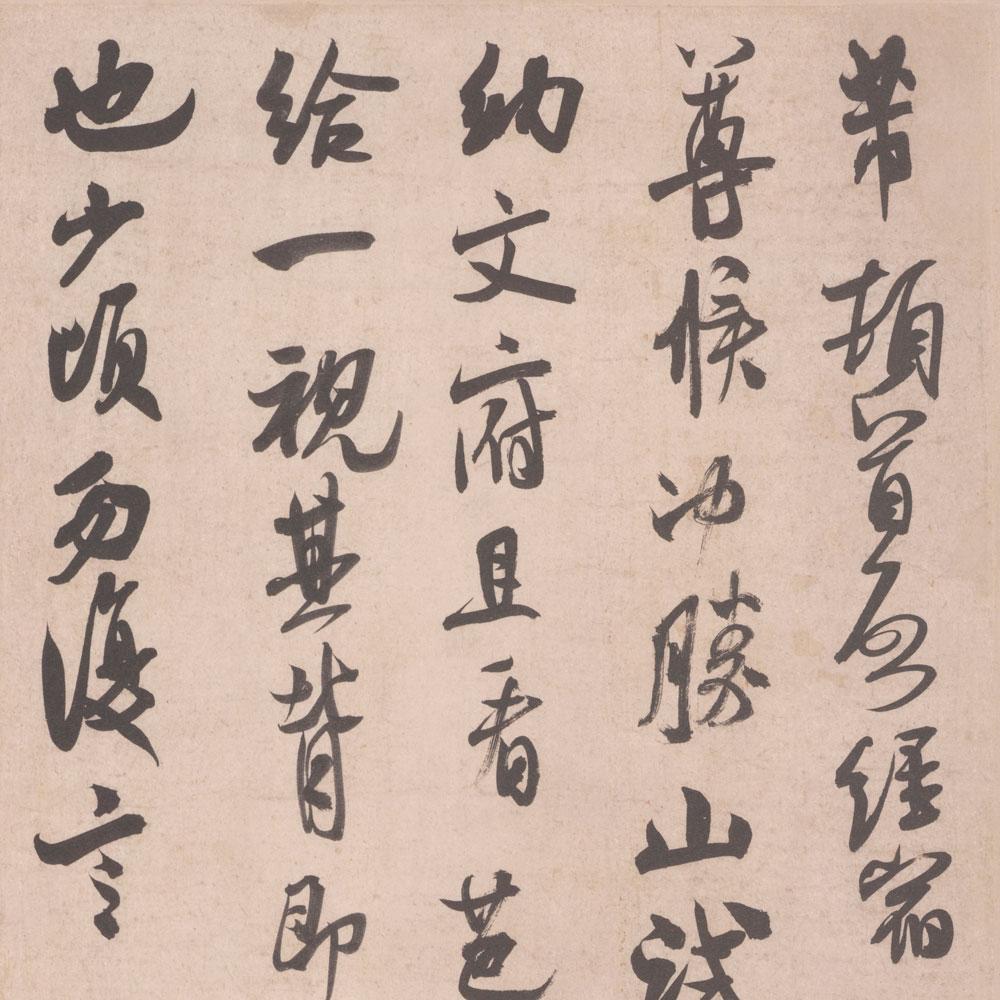 芾頓首啓經宿
尊候冲勝山試
納文府且看芭
給一視其背即
也少頃勿復言